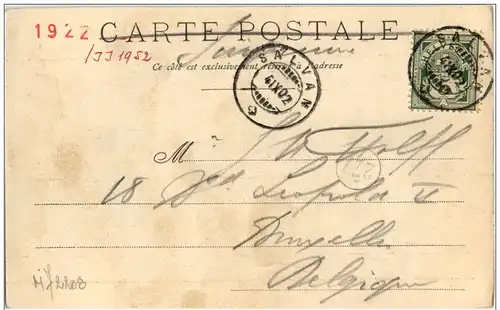 1922
CARTE POSTALE
/JJ1952
Ce côté est exclusivement réservé à l'adresse
SALVAN
4 IX 02
SALVAN
M
Wolff
18 Bd Leopold II
Bruxelles
Belgique
M72208